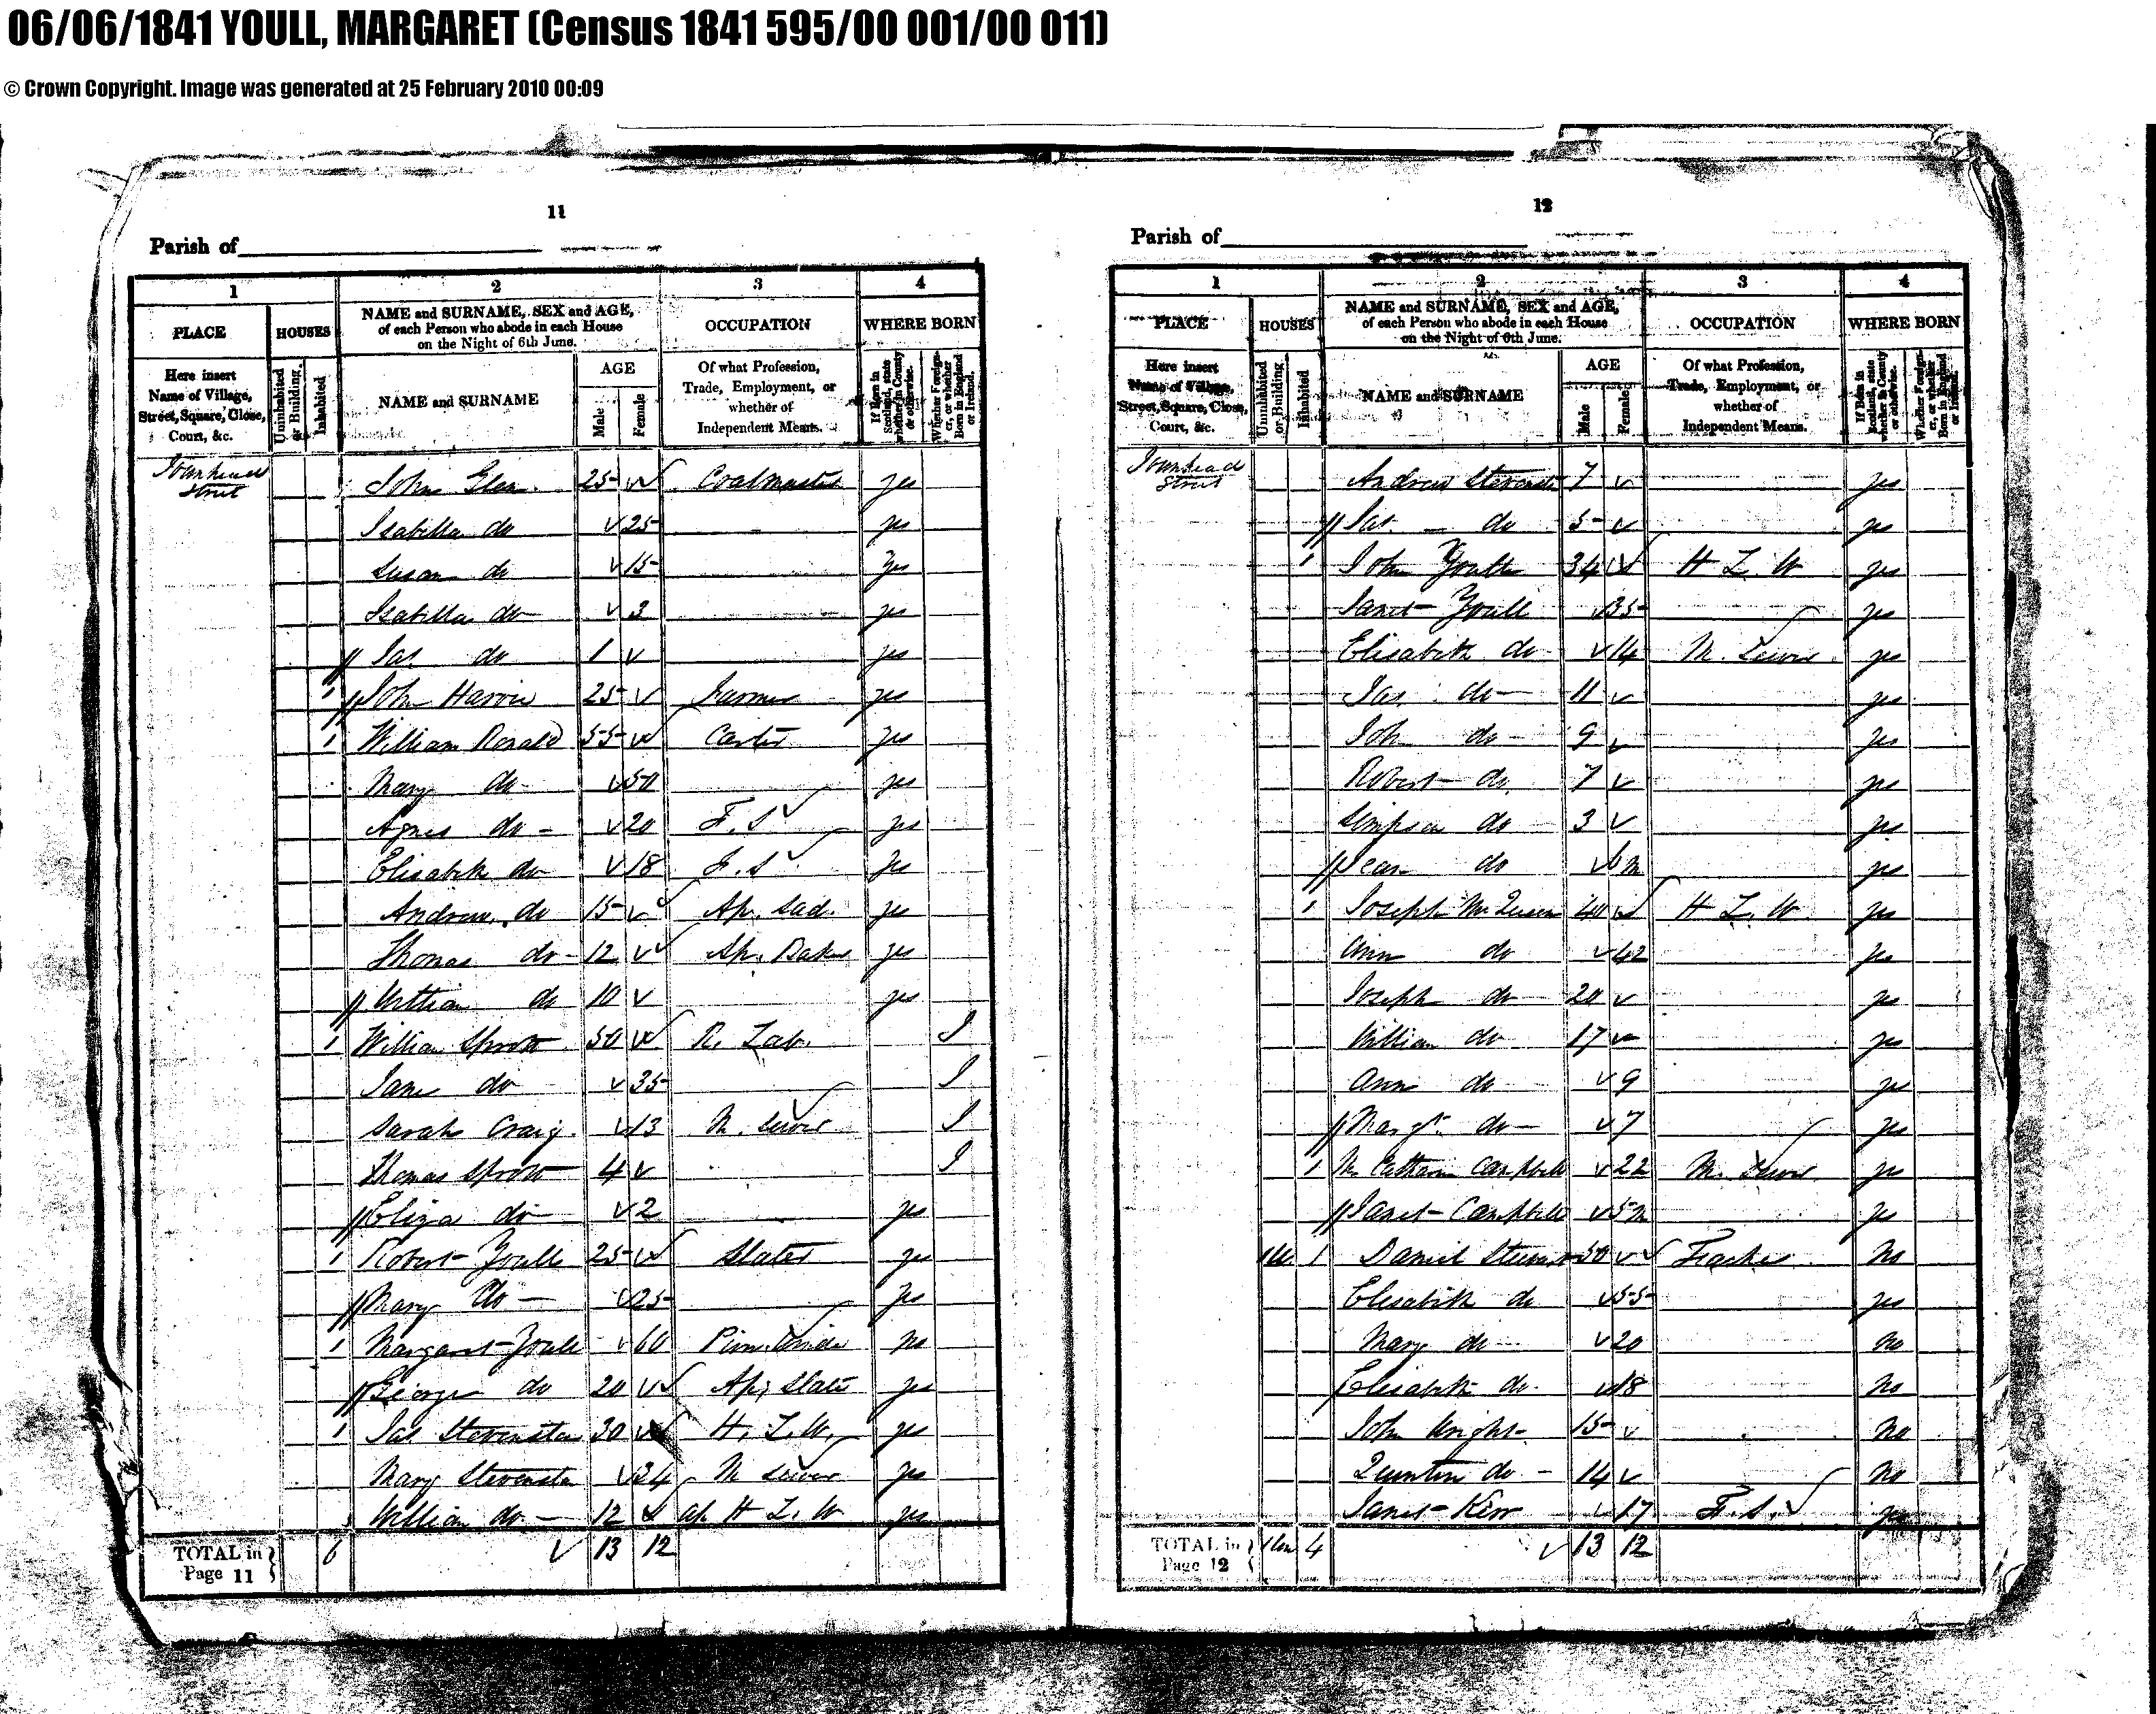 06/06/1841 YOULL, MARGARET (Census 1841 595/00 001/00 011)
© Crown Copyright. Image was generated at 25 February 2010 00:09
11
Parish of
1 2 3 4
PLACE HOUSES NAME and SURNAME, SEX and AGE, of each Person who abode in each House on the Night of 6th June. OCCUPATION WHERE BORN
Here insert Name of Village, Street, Square, Close, Court, &c. Uninhabited or Building Inhabited NAME and SURNAME AGE Male Female Of what Profession, Trade, Employment, or whether of Independent Means. If Born in Scotland, state whether in County or otherwise. Whether Foreigner, or whether Born in England or Ireland.
Townhead Street John Glen 25 Coalmaster yes
Isabella do 25 yes
Susan do 15 yes
Isabella do 3 yes
Jas do 1 yes
1 John Harvie 25 Farmer yes
1 William Ronald 55 Carter yes
Mary do 50 yes
Agnes do 20 F. S yes
Elisabeth do 18 F. S yes
Andrew do 15 Ap. Sad. yes
Thomas do 12 Ap. Baker yes
William do 10 yes
1 William Sprott 50 R. Lab. I
Jane do 35 I
Sarah Craig 13 M. Sewer I
Thomas Sprott 4 I
Eliza do 2 yes
1 Robert Youll 25 Slater yes
Mary Do 25 yes
1 Margaret Youll 60 Pirn Winder no
George do 20 Ap. Slater yes
1 Jas Stevenston 30 H. L. W. yes
Mary Stevenston 34 M Sewer yes
William do 12 ap H L. W yes
TOTAL in Page 11 6 13 12
12
Parish of
1 2 3 4
PLACE HOUSES NAME and SURNAME, SEX and AGE, of each Person who abode in each House on the Night of 6th June. OCCUPATION WHERE BORN
Here insert Name of Village, Street, Square, Close, Court, &c. Uninhabited or Building Inhabited NAME and SURNAME AGE Male Female Of what Profession, Trade, Employment, or whether of Independent Means. If Born in Scotland, state whether in County or otherwise. Whether Foreigner, or whether Born in England or Ireland.
Townhead Street Andrew Stevenston 7 yes
Jas. do 5 yes
1 John Youll 34 H L. W yes
Janet Youll 35 yes
Elisabeth do 14 M. Sewer yes
Jas. do 11 yes
Joh do 9 yes
Robert do 7 yes
Simpson do 3 yes
Jean do 6 m yes
1 Joseph McQueen 40 H L. W yes
Ann do 42 yes
Joseph do 20 yes
William do 17 yes
Ann do 9 yes
Margt. do 7 yes
1 Campbell 22 M. Sewer yes
Janet Campbell 5 m yes
1 Daniel 50 No
Elisabeth do 55 yes
Mary do 20 No
Elisabeth do 18 No
John Wright 15 No
Quintin do 14 No
Janet Kerr 17 F. S. yes
TOTAL in Page 12 4 13 12